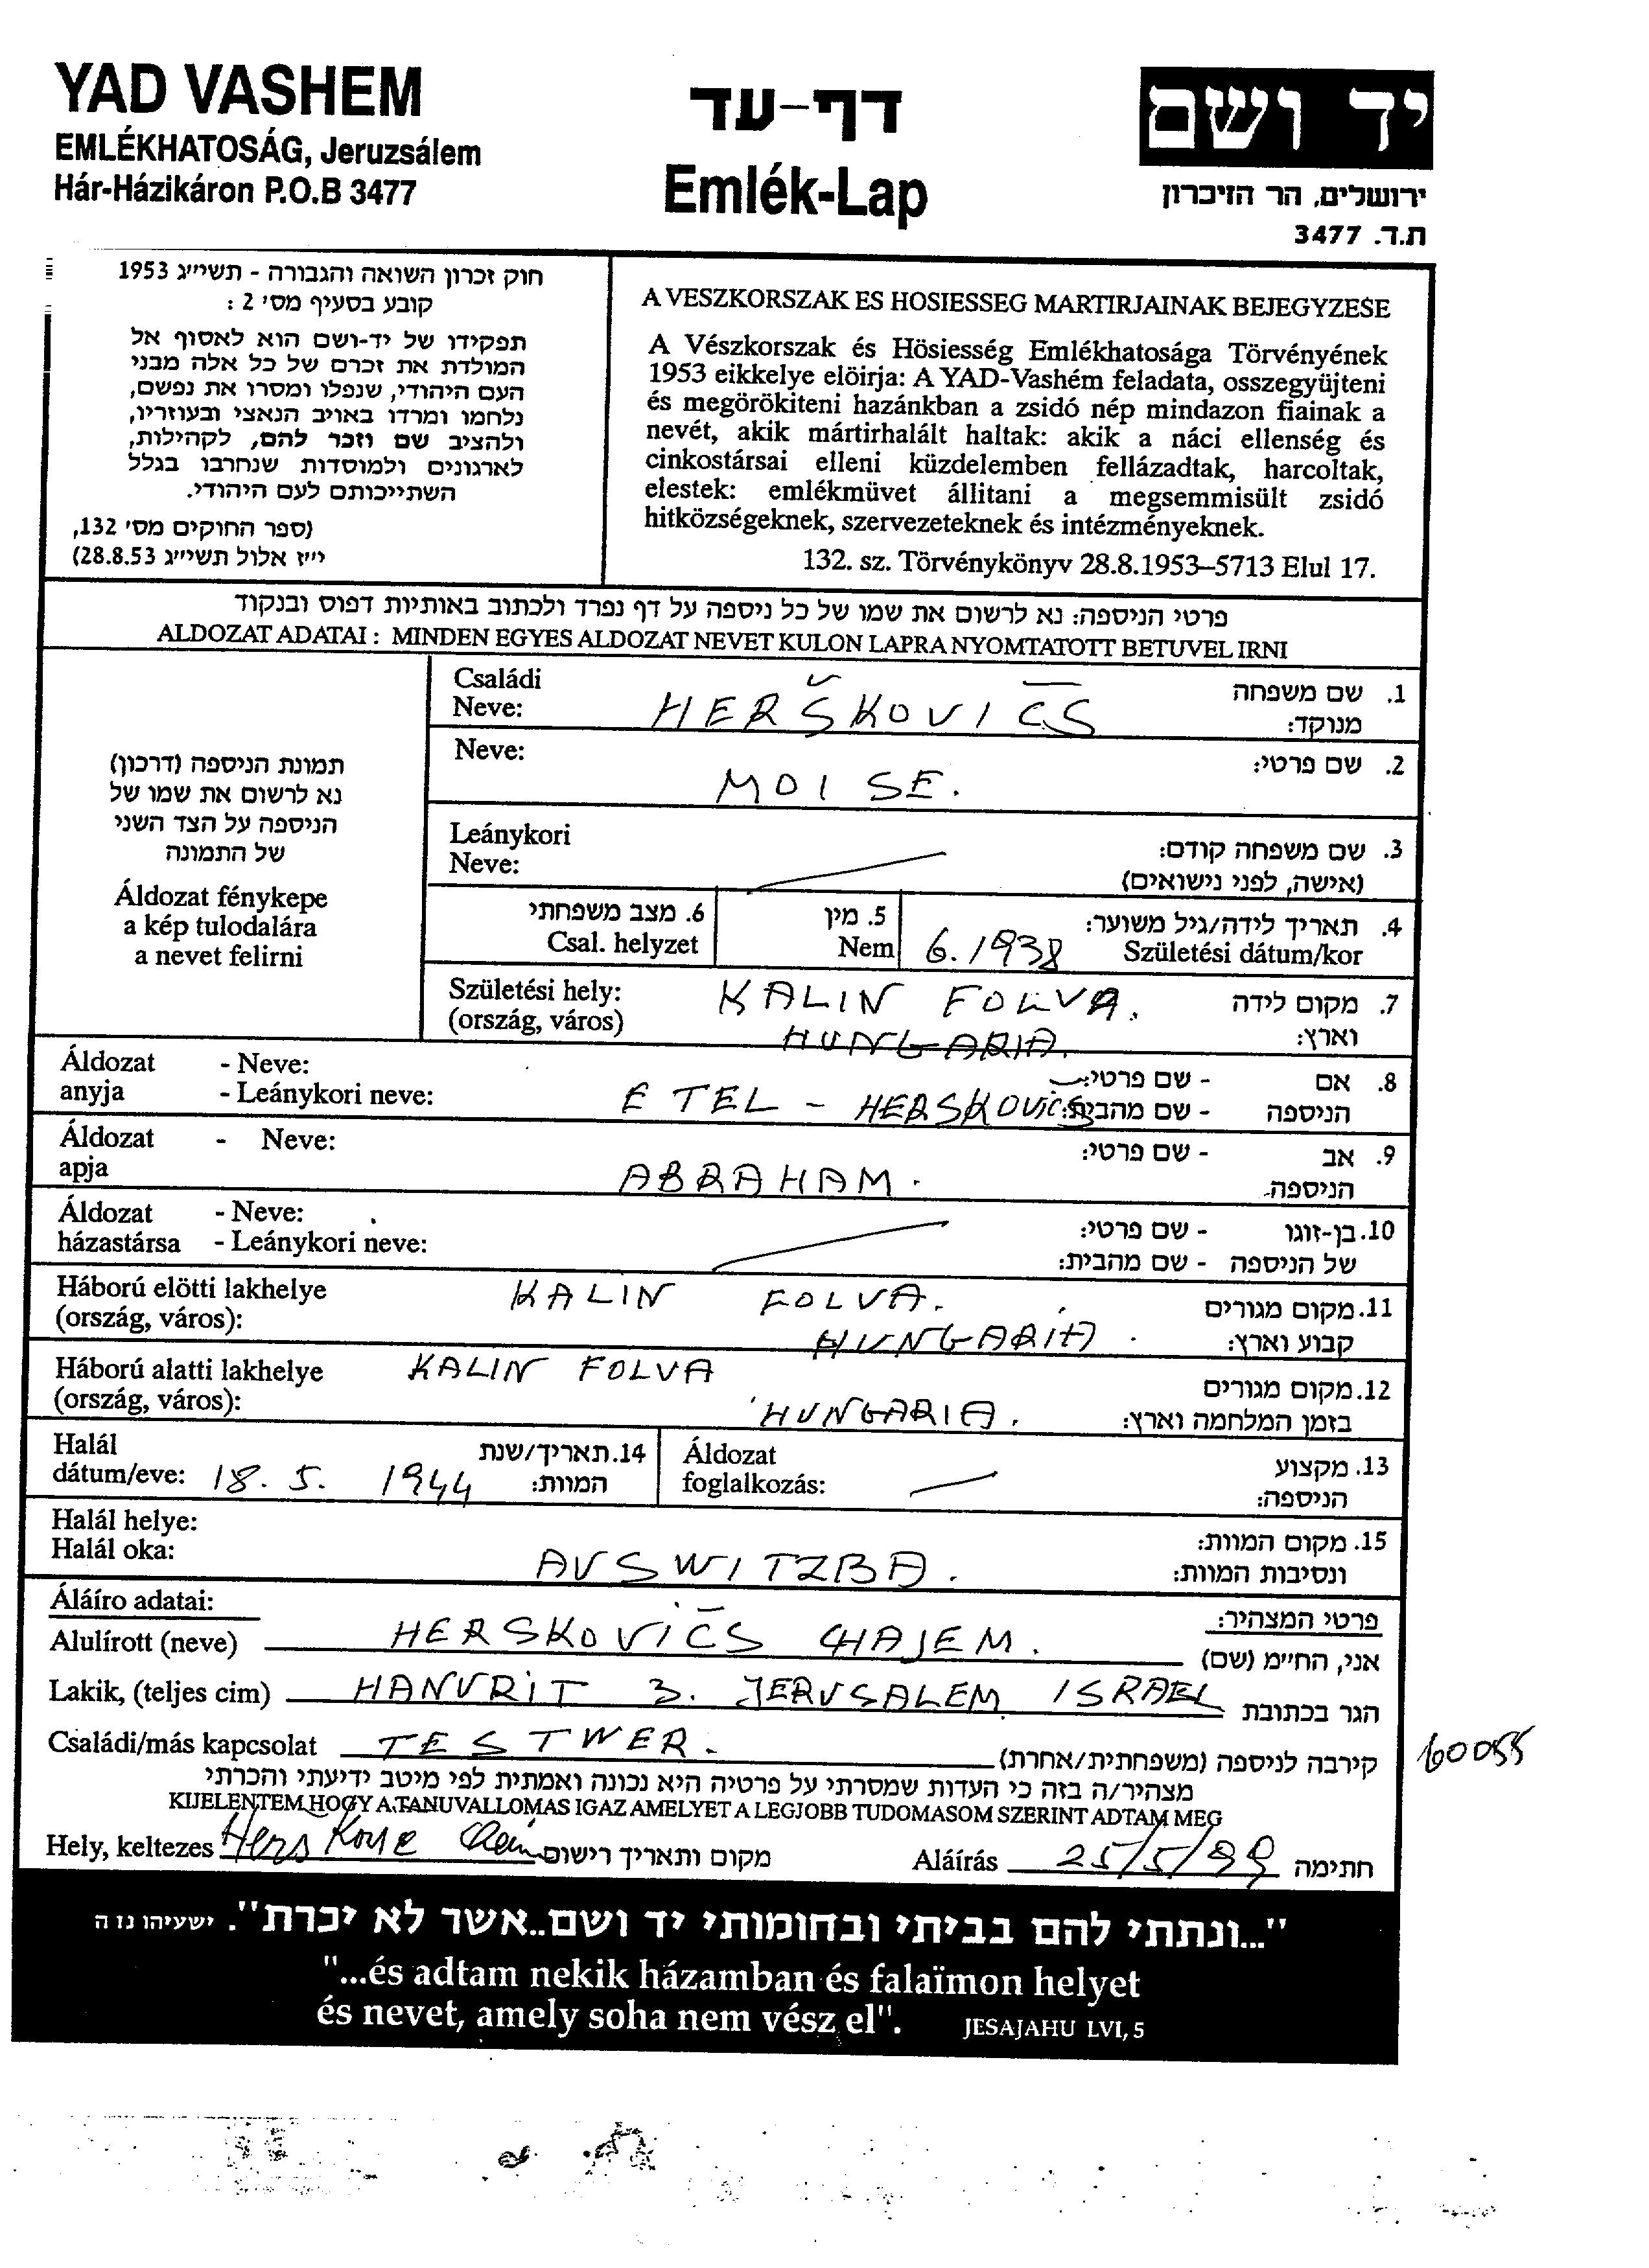 YAD VASHEM
EMLÉKHATOSÁG, Jeruzsálem
Hár-Házikáron P.O.B 3477
דף-עד
Emlék-Lap
יד ושם
ירושלים, הר הזיכרון
ת.ד. 3477
חוק זכרון השואה והגבורה - תשי״ג 1953
קובע בסעיף מס׳ 2 :
תפקידו של יד-ושם הוא לאסוף אל
המולדת את זכרם של כל אלה מבני
העם היהודי, שנפלו ומסרו את נפשם,
נלחמו ומרדו באויב הנאצי ובעוזריו,
ולהציב שם וזכר להם, לקהילות,
לארגונים ולמוסדות שנחרבו בגלל
השתייכותם לעם היהודי.
(ספר החוקים מס׳ 132,
י״ז אלול תשי״ג 28.8.53)
A VESZKORSZAK ES HOSIESSEG MARTIRJAINAK BEJEGYZESE
A Vészkorszak és Hösiesség Emlékhatosága Törvényének
1953 eikkelye elöirja: A YAD-Vashém feladata, osszegyüjteni
és megörökiteni hazánkban a zsidó nép mindazon fiainak a
nevét, akik mártirhalált haltak: akik a náci ellenség és
cinkostársai elleni küzdelemben fellázadtak, harcoltak,
elestek: emlékmüvet állitani a megsemmisült zsidó
hitközségeknek, szervezeteknek és intézményeknek.
132. sz. Törvénykönyv 28.8.1953–5713 Elul 17.
פרטי הניספה: נא לרשום את שמו של כל ניספה על דף נפרד ולכתוב באותיות דפוס ובנקוד
ALDOZAT ADATAI : MINDEN EGYES ALDOZAT NEVET KULON LAPRA NYOMTATOTT BETUVEL IRNI
תמונת הניספה (דרכון)
נא לרשום את שמו של
הניספה על הצד השני
של התמונה
Áldozat fénykepe
a kép tulodalára
a nevet felirni
Családi
Neve: HERŠKOVIČS 1. שם משפחה
מנוקד:
Neve: MOISE. 2. שם פרטי:
Leánykori
Neve: 3. שם משפחה קודם:
(אישה, לפני נישואים)
6. מצב משפחתי
Csal. helyzet
5. מין
Nem
4. תאריך לידה/גיל משוער:
6.1938 Születési dátum/kor
Születési hely: KALIN FOLVA. 7. מקום לידה
(ország, város) HUNGARIA. וארץ:
Áldozat - Neve: 8. אם - שם פרטי:
anyja - Leánykori neve: ETEL - HERSKOVIČS הניספה - שם מהבית:
Áldozat - Neve: 9. אב - שם פרטי:
apja ABRAHAM. הניספה
Áldozat - Neve: 10. בן-זוגו - שם פרטי:
házastársa - Leánykori neve: של הניספה - שם מהבית:
Háború elötti lakhelye KALIN FOLVA. 11. מקום מגורים
(ország, város): HUNGARIA. קבוע וארץ:
Háború alatti lakhelye KALIN FOLVA 12. מקום מגורים
(ország, város): HUNGARIA. בזמן המלחמה וארץ:
Halál
dátum/eve: 18. 5. 1944 14. תאריך/שנת
המוות:
Áldozat
foglalkozás: 13. מקצוע
הניספה:
Halál helye:
Halál oka: AUSWITZBA. 15. מקום המוות:
ונסיבות המוות:
Áláíro adatai: פרטי המצהיר:
Alulírott (neve) HERSKOVIČS CHAJEM. אני, החי״מ (שם)
Lakik, (teljes cim) HANURIT 3. JERUSALEM ISRAEL הגר בכתובת
Családi/más kapcsolat TESTWER. קירבה לניספה (משפחתית/אחרת)
60055
מצהיר/ה בזה כי העדות שמסרתי על פרטיה היא נכונה ואמתית לפי מיטב ידיעתי והכרתי
KIJELENTEM HOGY A TANUVALLOMAS IGAZ AMELYET A LEGJOBB TUDOMASOM SZERINT ADTAM MEG
Hely, keltezes מקום ותאריך רישום Aláírás 25/5/99 חתימה
"...ונתתי להם בביתי ובחומותי יד ושם..אשר לא יכרת". ישעיהו נז ה
"...és adtam nekik házamban és falaïmon helyet
és nevet, amely soha nem vész el". JESAJAHU LVI, 5